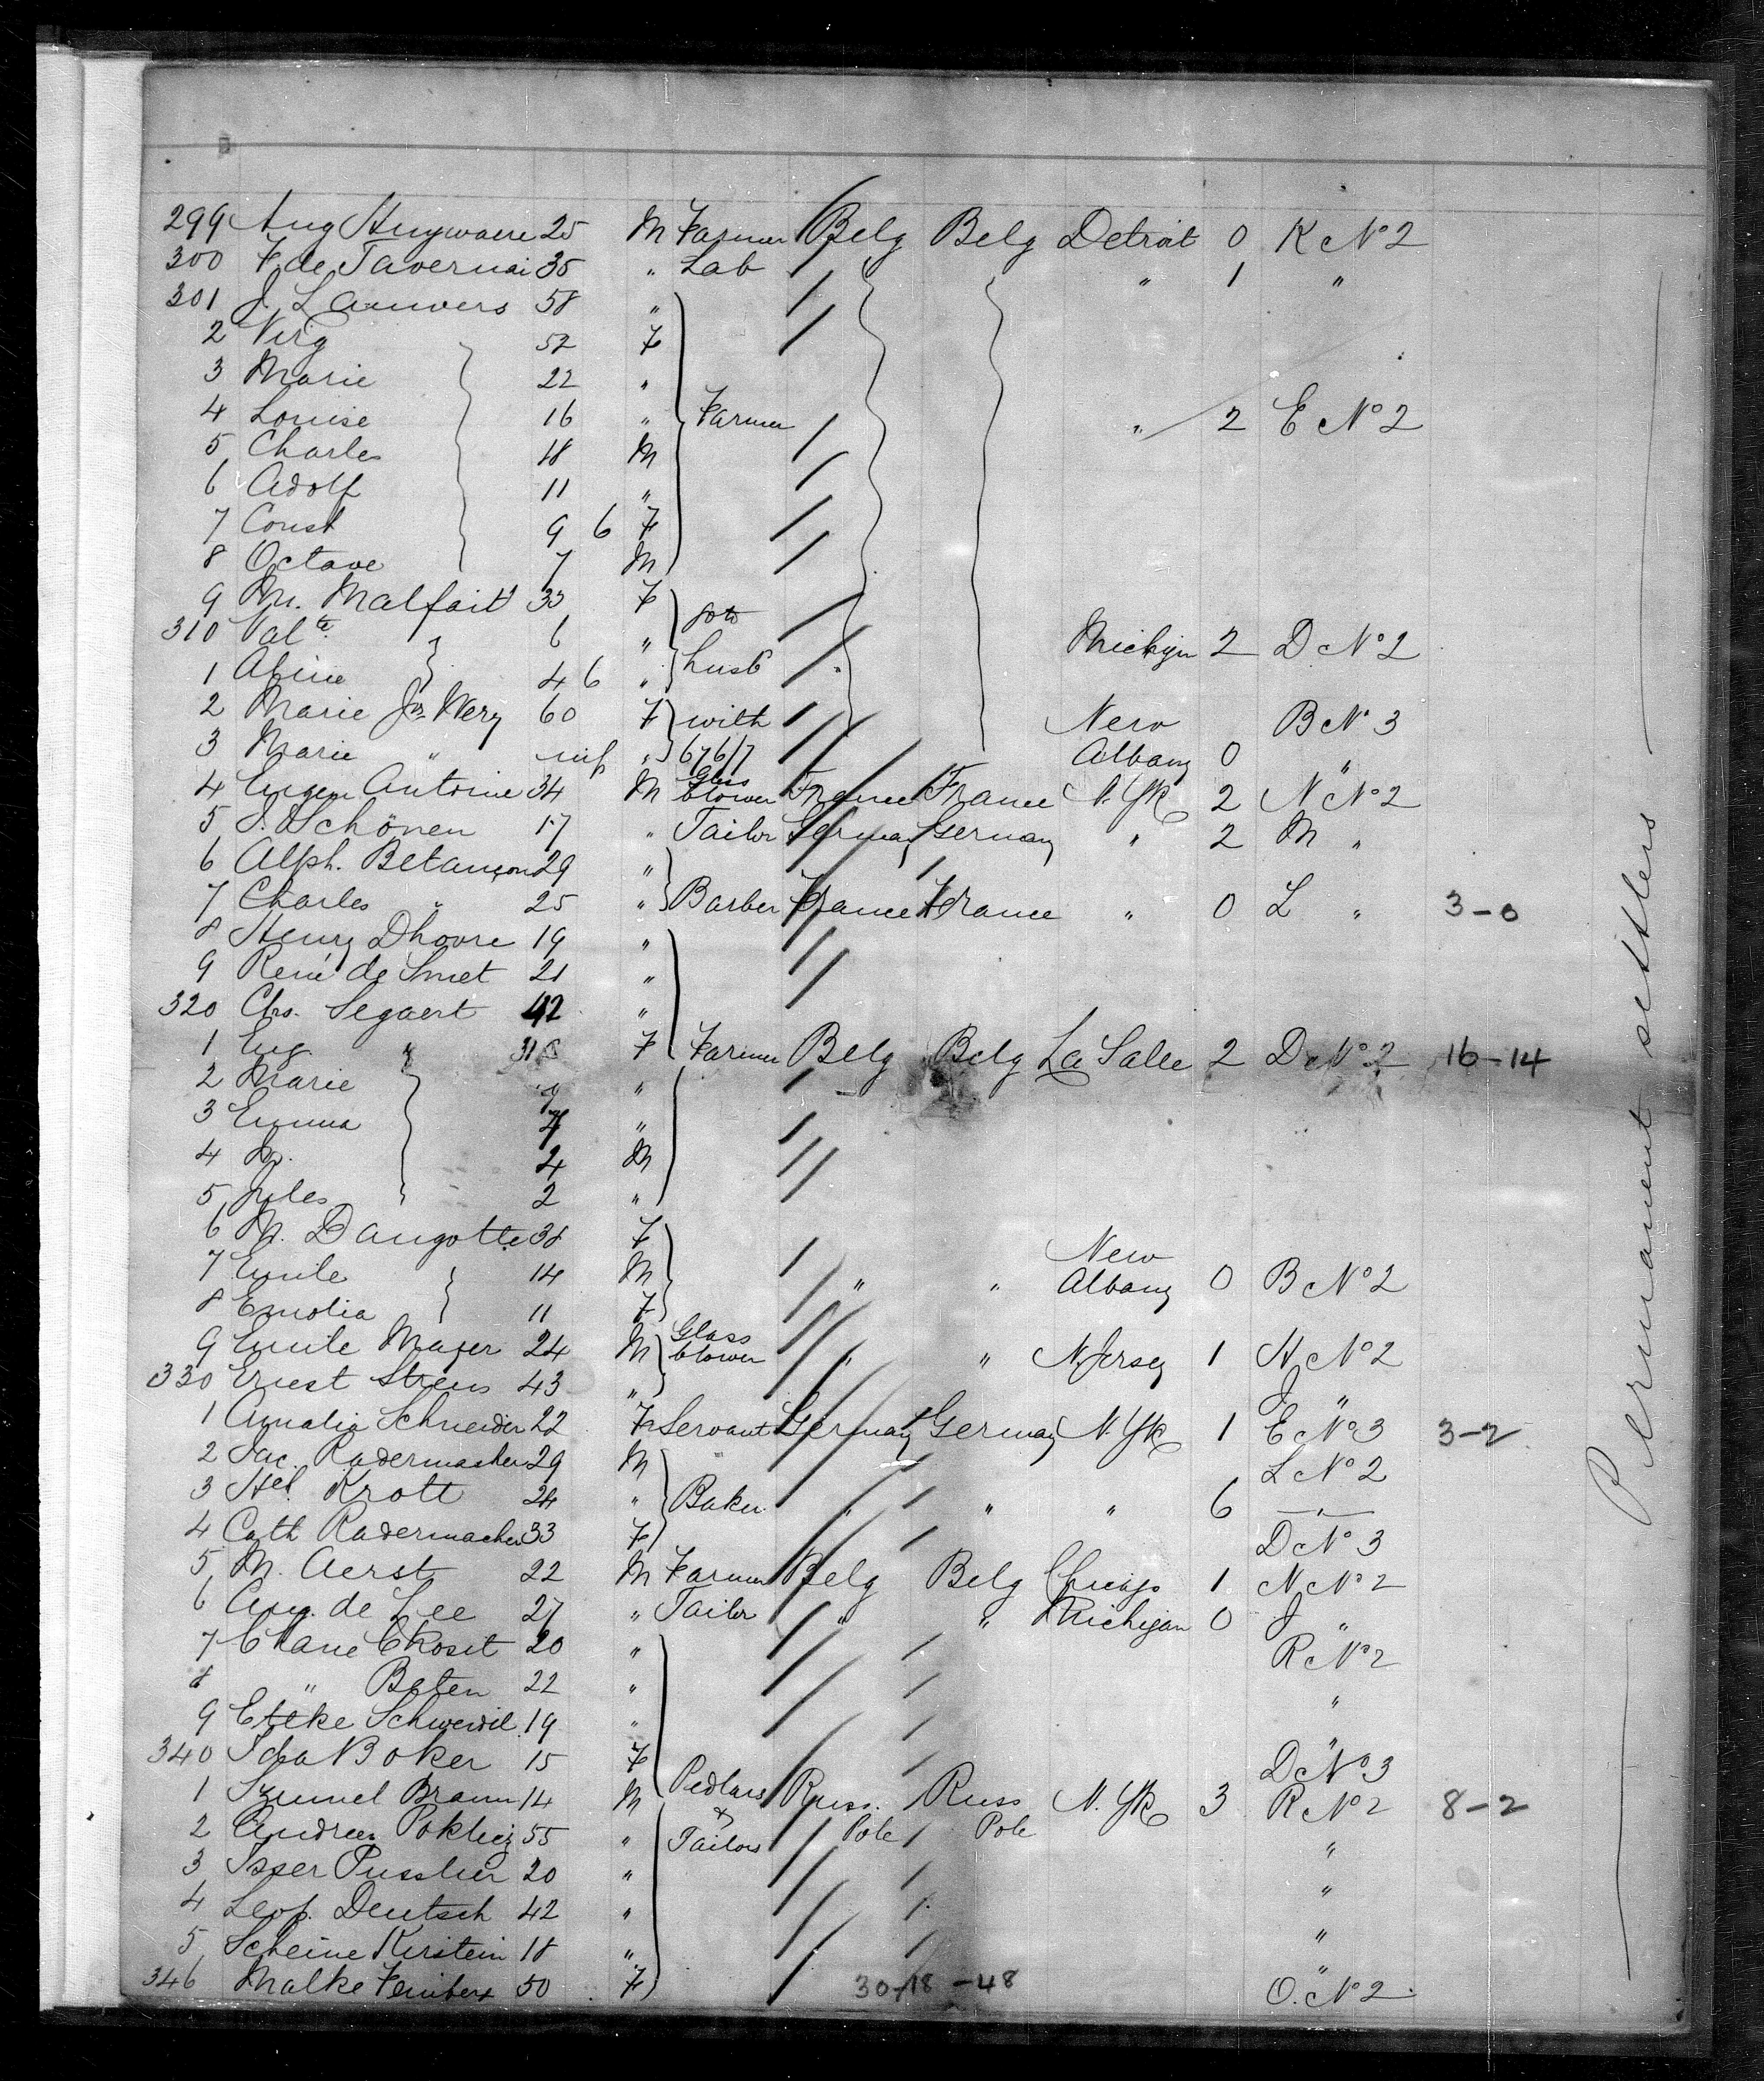 299 Aug Huywaere 25 M Farmer Belg Belg Detroit 0 K No 2
300 F. de Tavernai 35 " Lab " 1 "
301 J. Lauwers 58 "
2 Virg 52 F
3 Marie 22 "
4 Louise 16 " Farmer " 2 E No 2
5 Charles 18 M
6 Adolf 11 "
7 Const 9 6 F
8 Octave 7 M
9 M. Malfait 33 F
310 Valte 6 " Michign 2 D No 2
1 4 6 " husb
2 Marie Jos. Wery 60 F with New B No 3
3 Marie " inf " 676/7 Albany 0 "
4 Eugen Antoine 34 M Glass blower France France N. Yk 2 N No 2
5 J. Schönen 17 " Tailor Germany Germany " 2 M "
6 Alph. Betançon 29 "
7 Charles " 25 " Barber France France " 0 L " 3-0
8 Henry Dhoore 19 "
9 René de Smet 21 "
320 Chs. Segaert 42 "
1 Eug " 31 F Farmer Belg Belg La Salle 2 D No 2 16-14
2 Marie 9 "
3 Emma "
4 M
5 Jules 2 "
6 M. Dangotte 38 F
7 Emile 14 M " " New Albany 0 B No 2
8 Emolia 11 F
9 Emile Mayer 24 M Glass blower " " N. Jersey 1 H No 2
330 Ernest Strens 43 " J "
1 Amalia Schneider 22 F Servant Germany Germany N. Yk 1 E No 3 3-2
2 Jac. Radermacher 29 M L No 2
3 Hel. Krott 24 " Baker " " " 6 — " —
4 Cath Radermacher 33 F D No 3
5 M. Aerst 22 M Farmer Belg Belg Chicago 1 N No 2
6 Aug. de Lee 27 " Tailor " " Michigan 0 J "
7 20 " R No 2
8 " Beten 22 " "
9 Etske 19 " "
340 Ida Boker 15 F D No 3
1 Szumel Braun 14 M Pedlars Russ. Russ N. Yk 3 R No 2 8-2
2 Andrees 55 " & Tailors Pole Pole "
3 Isser Pussher 20 " "
4 Leop. Deutsch 42 " "
5 Scheine Kirstein 18 " "
346 Malke 50 F 30/18-48 O. No 2
Permanent settlers